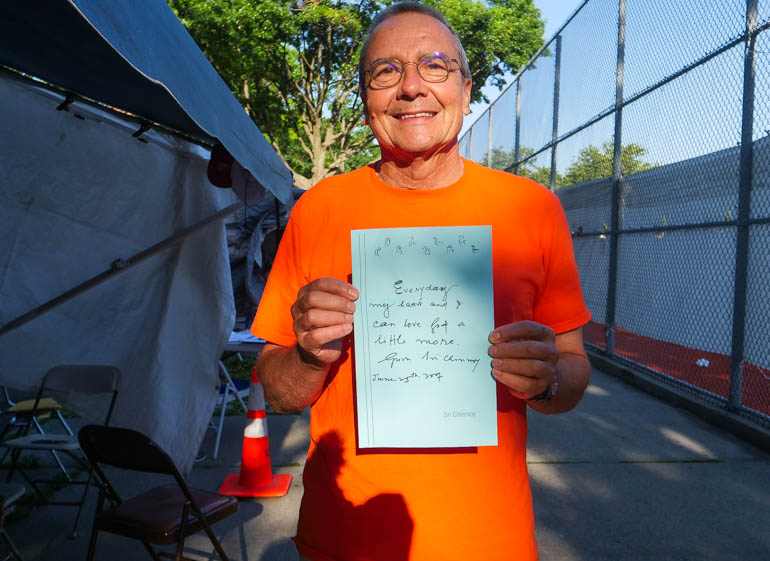 Everyday
my Lord and I
can love God a
little more.
Guru Sri Chinmoy
June 25th, 2007
Sri Chinmoy